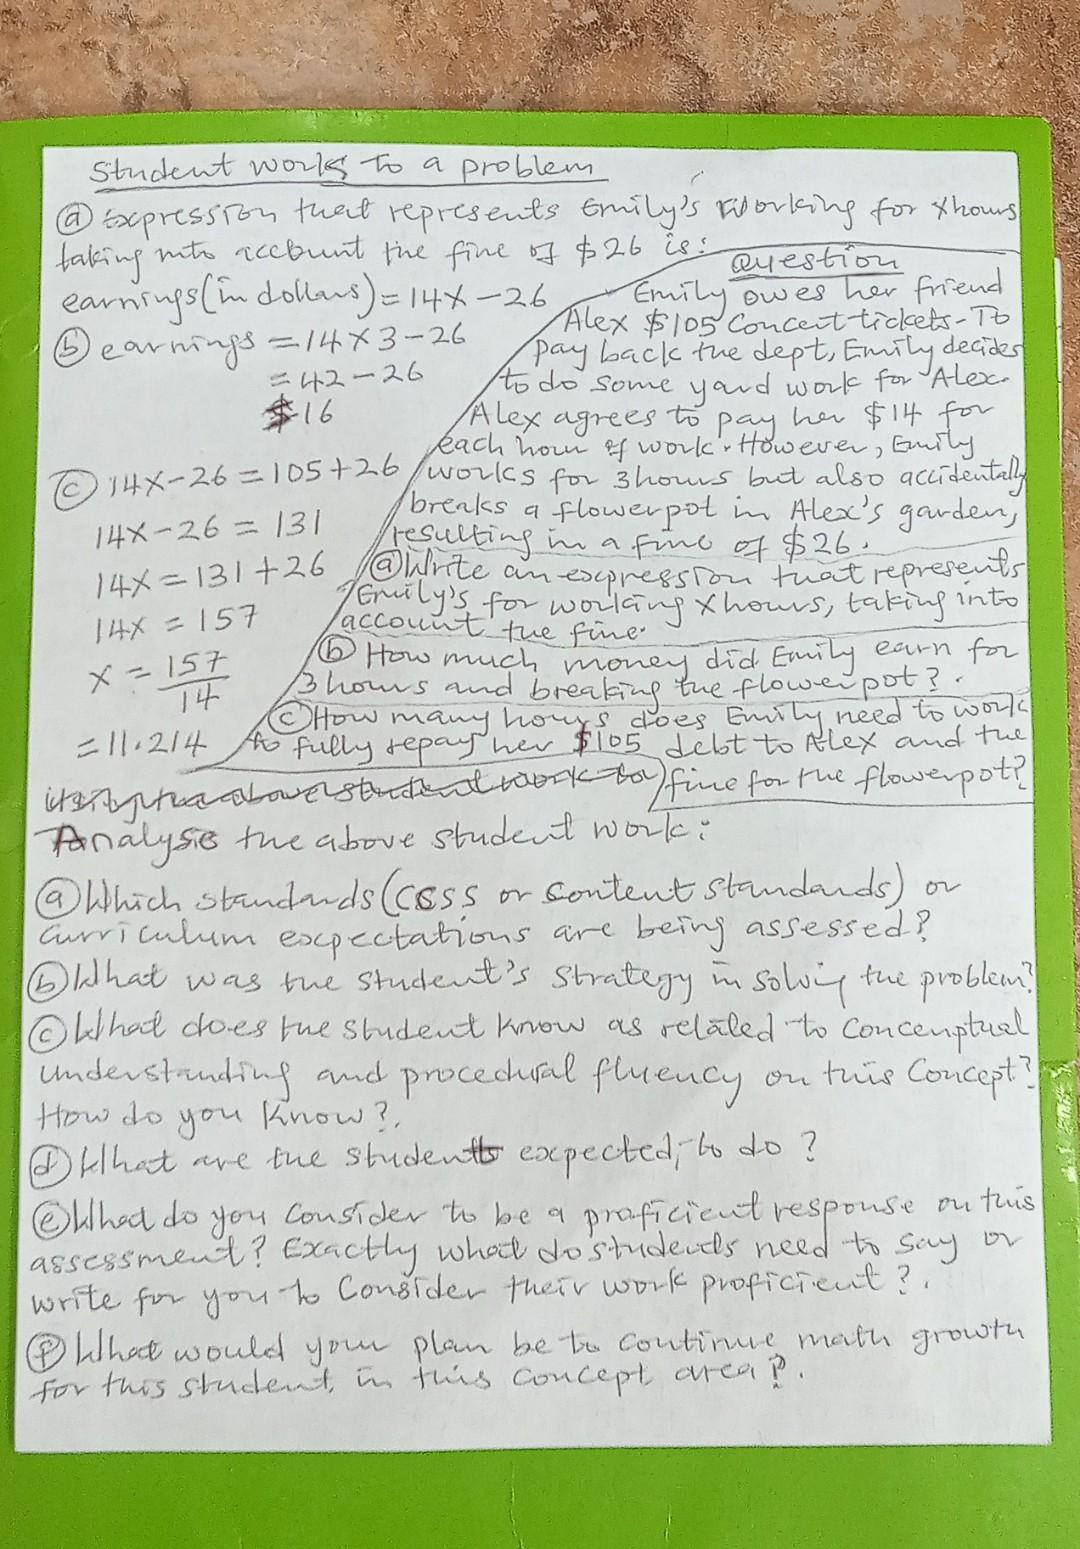 Student works to a problem
ⓐ Expression that represents Emily's working for x hours
taking into account the fine of $26 is:
earnings (in dollars) = 14x - 26
ⓑ earnings = 14 x 3 - 26
= 42 - 26
$16
ⓒ 14x - 26 = 105 + 26
14x - 26 = 131
14x = 131 + 26
14x = 157
x = 157
14
= 11.214
Question
Emily owes her friend
Alex $105 Concert tickets - To
pay back the dept, Emily decides
to do some yard work for Alex.
Alex agrees to pay her $14 for
each hour of work. However, Emily
works for 3 hours but also accidentally
breaks a flowerpot in Alex's garden,
resulting in a fine of $26.
ⓐ Write an expression that represents
Emily's for working x hours, taking into
account the fine.
ⓑ How much money did Emily earn for
3 hours and breaking the flowerpot?.
ⓒ How many hours does Emily need to work
to fully repay her $105 debt to Alex and the
fine for the flowerpot?
Using the above student work to
Analyse the above student work:
ⓐ Which standards (CCSS or Content standards) or
Curriculum expectations are being assessed?
ⓑ What was the student's strategy in solvig the problem?
ⓒ What does the student know as related to Concenptual
Understanding and procedural fluency on this Concept?
How do you know?.
ⓓ What are the students expected, to do?
ⓔ What do you Consider to be a proficient response on this
assessment? Exactly what do students need to say or
write for you to Consider their work proficient?.
ⓕ What would your plan be to continue math growth
for this student in this concept area?.